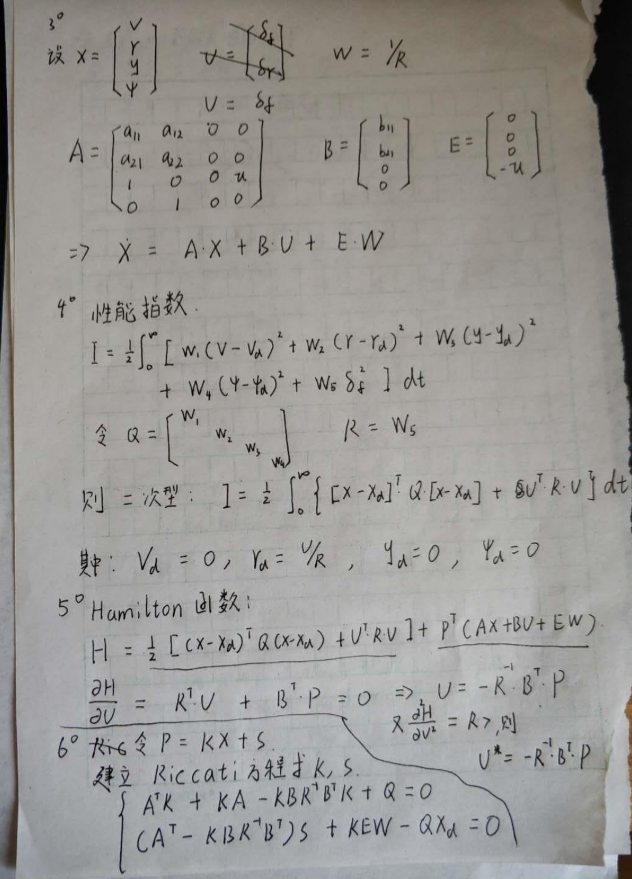 3°
设 X = [v r y ψ] U = [δf δr] W = 1/R
U = δf
A = [a11 a12 0 0; a21 a22 0 0; 1 0 0 u; 0 1 0 0] B = [b11 b21 0 0] E = [0 0 0 -u]
=> Ẋ = A·X + B·U + E·W
4° 性能指数.
I = ½∫₀^∞ [ W₁(V-Vd)² + W₂(r-rd)² + W₃(y-yd)²
+ W₄(ψ-ψd)² + W₅ δf² ] dt
令 Q = [W₁ W₂ W₃ W₄] R = W₅
则 二次型: J = ½ ∫₀^∞ { [X-Xd]ᵀ·Q·[X-Xd] + Uᵀ·R·Uᵀ } dt
其中: Vd = 0, rd = U/R, yd = 0, ψd = 0
5° Hamilton 函数:
H = ½ [(X-Xd)ᵀ Q (X-Xd) + Uᵀ·R·U] + Pᵀ(AX+BU+EW).
∂H/∂U = Rᵀ·U + Bᵀ·P = 0 => U = -R⁻¹·Bᵀ·P
又 ∂H/∂U² = R>, 则
U* = -R⁻¹·Bᵀ·P
6° Ric 令 P = KX + S.
建立 Riccati 方程求 K, S.
{ AᵀK + KA - KBR⁻¹BᵀK + Q = 0
(Aᵀ - KBR⁻¹Bᵀ)S + KEW - QXd = 0